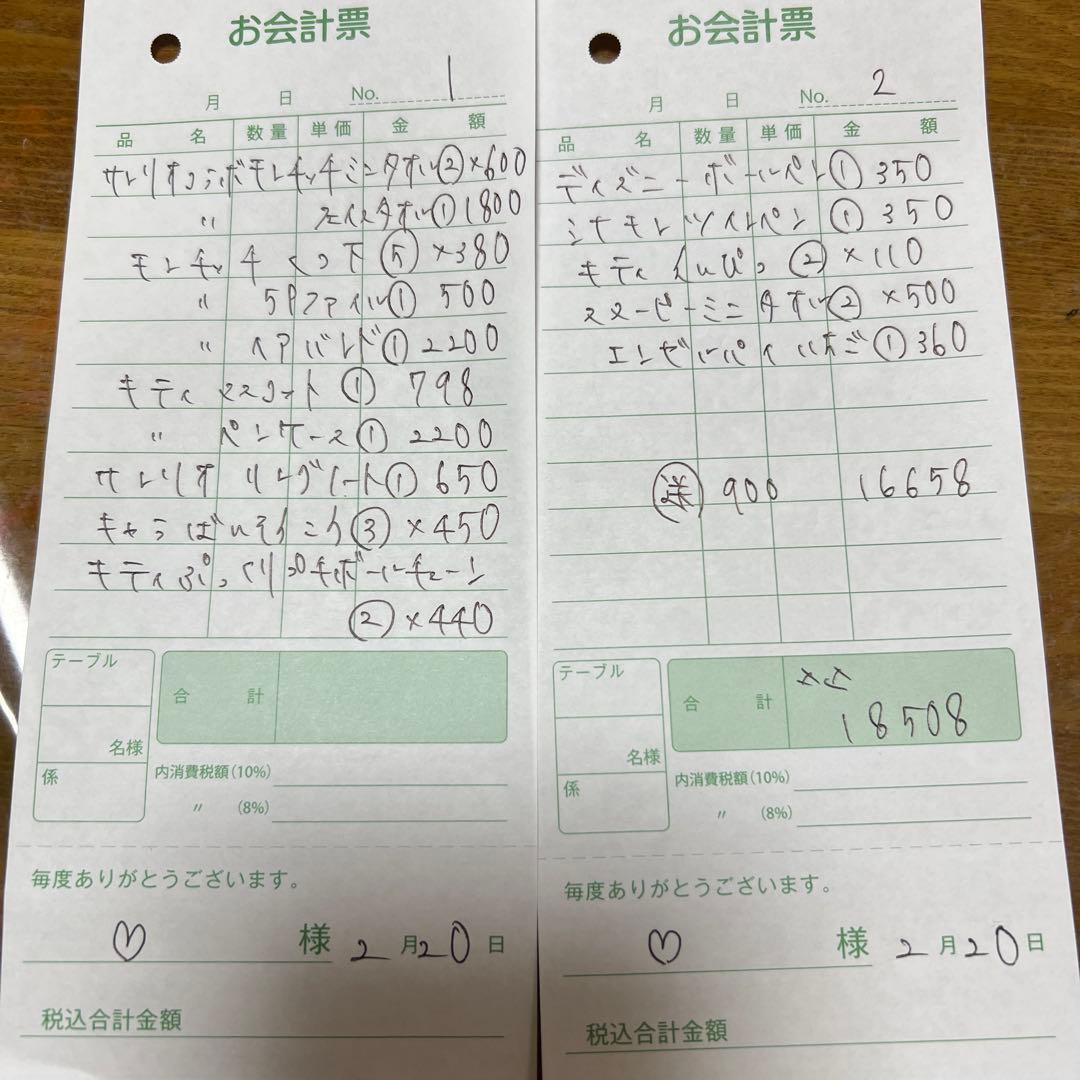 お会計票
月 日 No. 1
品名 数量 単価 金額
サンリオコラボモンチッチミニタオル②×600
〃 フェイスタオル①1800
モンチッチくつ下⑤×380
〃 5Pファイル① 500
〃 ヘアバンド①2200
キティマスコット① 798
〃 ペンケース①2200
サンリオ リングノート①650
キャラばいえんこ③×450
キティぷっくりプチボールチェーン
②×440
テーブル
名様
係
合計
内消費税額(10%)
〃 (8%)
毎度ありがとうございます。
♡ 様 2月20日
税込合計金額
お会計票
月 日 No. 2
品名 数量 単価 金額
ディズニーボールペン①350
シナモンツインペン①350
キティえんぴつ②×110
スヌーピーミニタオル②×500
エンゼルパイいちご①360
送 900 16658
テーブル
名様
係
合計
18508
内消費税額(10%)
〃 (8%)
毎度ありがとうございます。
♡ 様 2月20日
税込合計金額